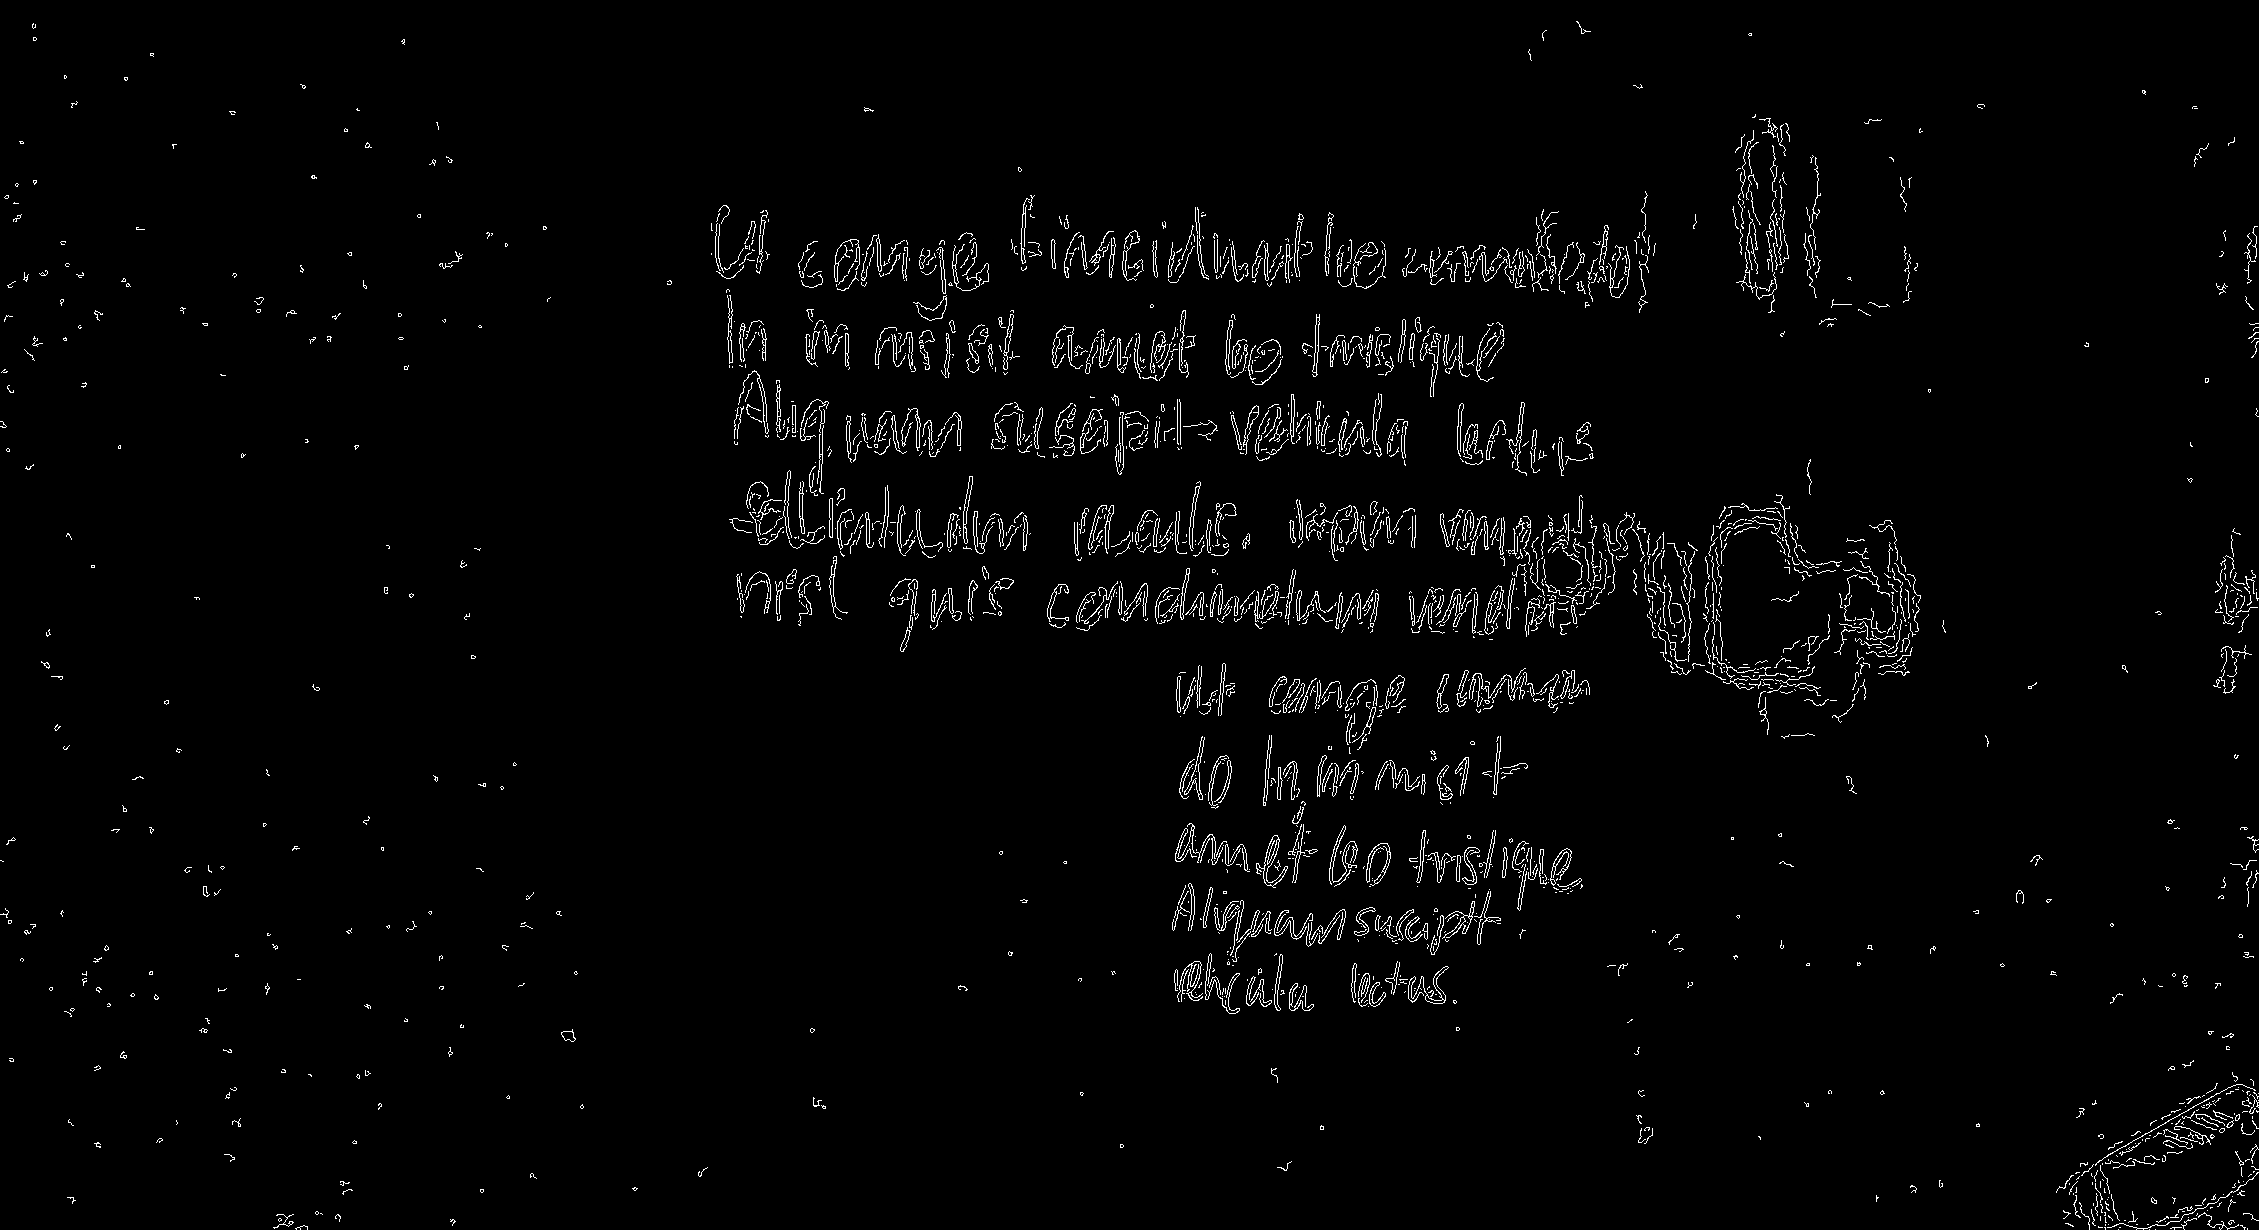 Ut congue tincidunt leo commodo
In in nisi sit amet leo tristique
Aliquam suscipit vehicula lectus
sollicitudin iaculis. Proin
nisl quis condimetum venenatis
Ut congue common
do In in nisi sit
amet leo tristique
Aliquam suscipit
vehicula lectus.